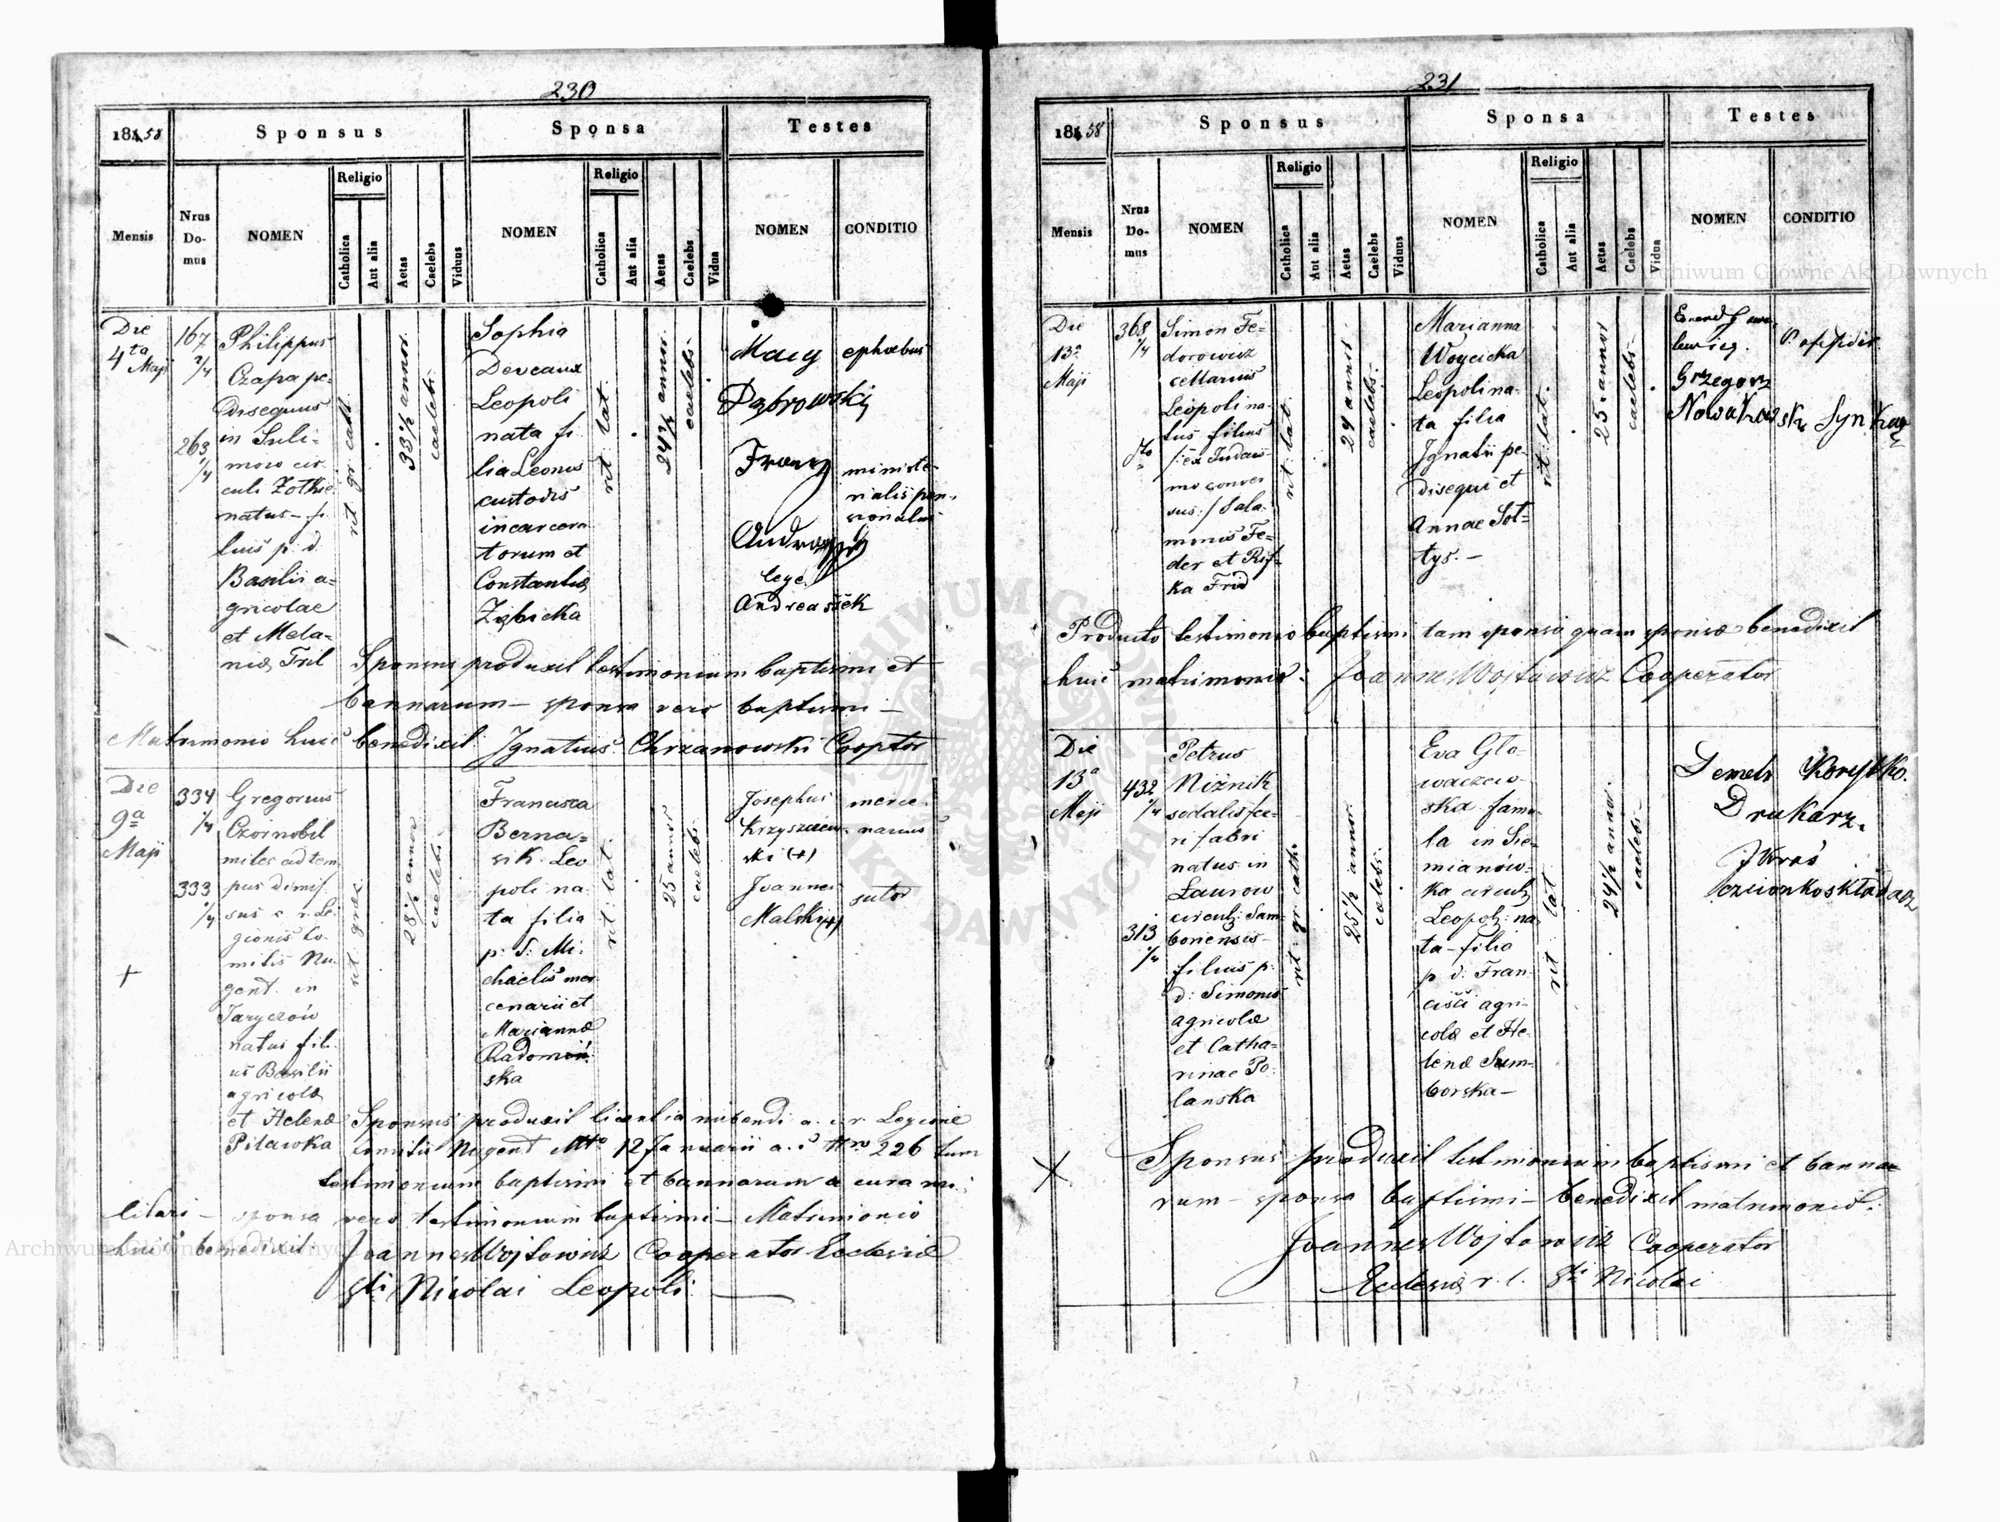 230
1858
Sponsus
Sponsa
Testes
Mensis
Nrus Domus
NOMEN
Religio
Catholica
Aut alia
Aetas
Caelebs
Viduus
NOMEN
Religio
Catholica
Aut alia
Aetas
Caelebs
Vidua
NOMEN
CONDITIO
Die
4ta
Maji
167
2/4
263
1/4
Philippus
Czapa pe-
disequus
in Suli-
mow cir-
culi Zolkie
natus - fi
lius p. d.
Basilii a-
gricolae
et Mela-
niae Fril
rit. gr. cath
33 1/2 annor.
caelebs.
Sophia
Deveaux
Leopoli
nata fi
lia Leonis
custodis
incarcera
torum et
Constantiae
Zębicka
rit. lat.
24 1/2 annor.
caelebs.
Dąbrowski
ephoebus
Franz
ministe-
rialis pen-
lege
Andreaszek
Sponsus produxit testimonium baptismi et
bannorum - sponsa vero baptismi -
Matrimonio huic benedixit Ignatius Chrzanowski Cooptor
Die
9a
Maji
334
1/4
333
1/4
Gregorius
Czornobil
miles ad tem
pus dimis-
sus c. r. Le-
gionis Co-
mitis Nu-
gent. in
Jaryczów
natus fili-
us Basilii
agricolae
et Helenae
Pitawka
rit. graec.
28 1/2 annor
caelebs.
Francisca
Berna-
sik. Leo
poli na-
ta filia
p. d. Mi-
chaelis mer
cenarii et
Mariannae
Radomiń-
ska
rit. lat.
25 annor
caelebs.
Josephus
ski (+)
Joannes
Malski (+)
merce-
narius
sutor
Sponsus produxit licentia nubendi a c. r. Legione
Comitis Nugent dtto 12 Januarii a. c. Nro 226 tum
testimonium baptismi et bannorum a cura mi-
litari - sponsa vero testimonium baptismi - Matrimonio
huic benedixit Joannes Wojtowicz Cooperator Ecclesiae
Sti Nicolai Leopoli.
231
1858
Sponsus
Sponsa
Testes
Mensis
Nrus Domus
NOMEN
Religio
Catholica
Aut alia
Aetas
Caelebs
Viduus
NOMEN
Religio
Catholica
Aut alia
Aetas
Caelebs
Vidua
NOMEN
CONDITIO
Die
13a
Maji
368
2/4
Simon Fe-
dorowicz
cellarius
Leopoli na-
tus filius
/: ex Judais-
mo conver
sus :/ Sala-
monis Fe-
der et Rif-
ka Frid
rit. lat.
29 annor
caelebs.
Marianna
Woycicka
Leopoli na-
ta filia
Ignatii pe-
disequi et
Annae Sol-
tys. -
rit. lat.
25. annor
caelebs.
Grzegorz
Nowakowski
Producto testimonio baptismi tam sponsi quam sponsae benedixit
huic matrimonio. Joannes Wojtowicz Cooperator
Die
13a
Maji
432
1/4
313
1/4
Petrus
Niżnik
sodalis fer-
ri fabri
natus in
Laurow
circuli: Sam-
boriensis -
filius p.
d: Simonis
agricolae
et Catha-
rinae Po-
lanska
rit: gr cath:
25 1/2 annor.
caelebs.
Eva Glo-
waczew-
ska famu-
la in Sie-
mianów-
ka circuli
Leopoli: na-
ta - filia
p. d: Fran-
cisci agri-
colae et He-
lenae Sam-
borska -
rit. lat
24 1/2 annor.
caelebs.
Drukarz.
Sponsus produxit testimonium baptismi et banno-
rum - sponsa baptismi - benedixit matrimonio.
Joannes Wojtowicz Cooperator
Ecclesiae r. l. Sti Nicolai
ARCHIWUM GŁÓWNE AKT DAWNYCH
Archiwum Główne Akt Dawnych
Archiwum Główne Akt Dawnych